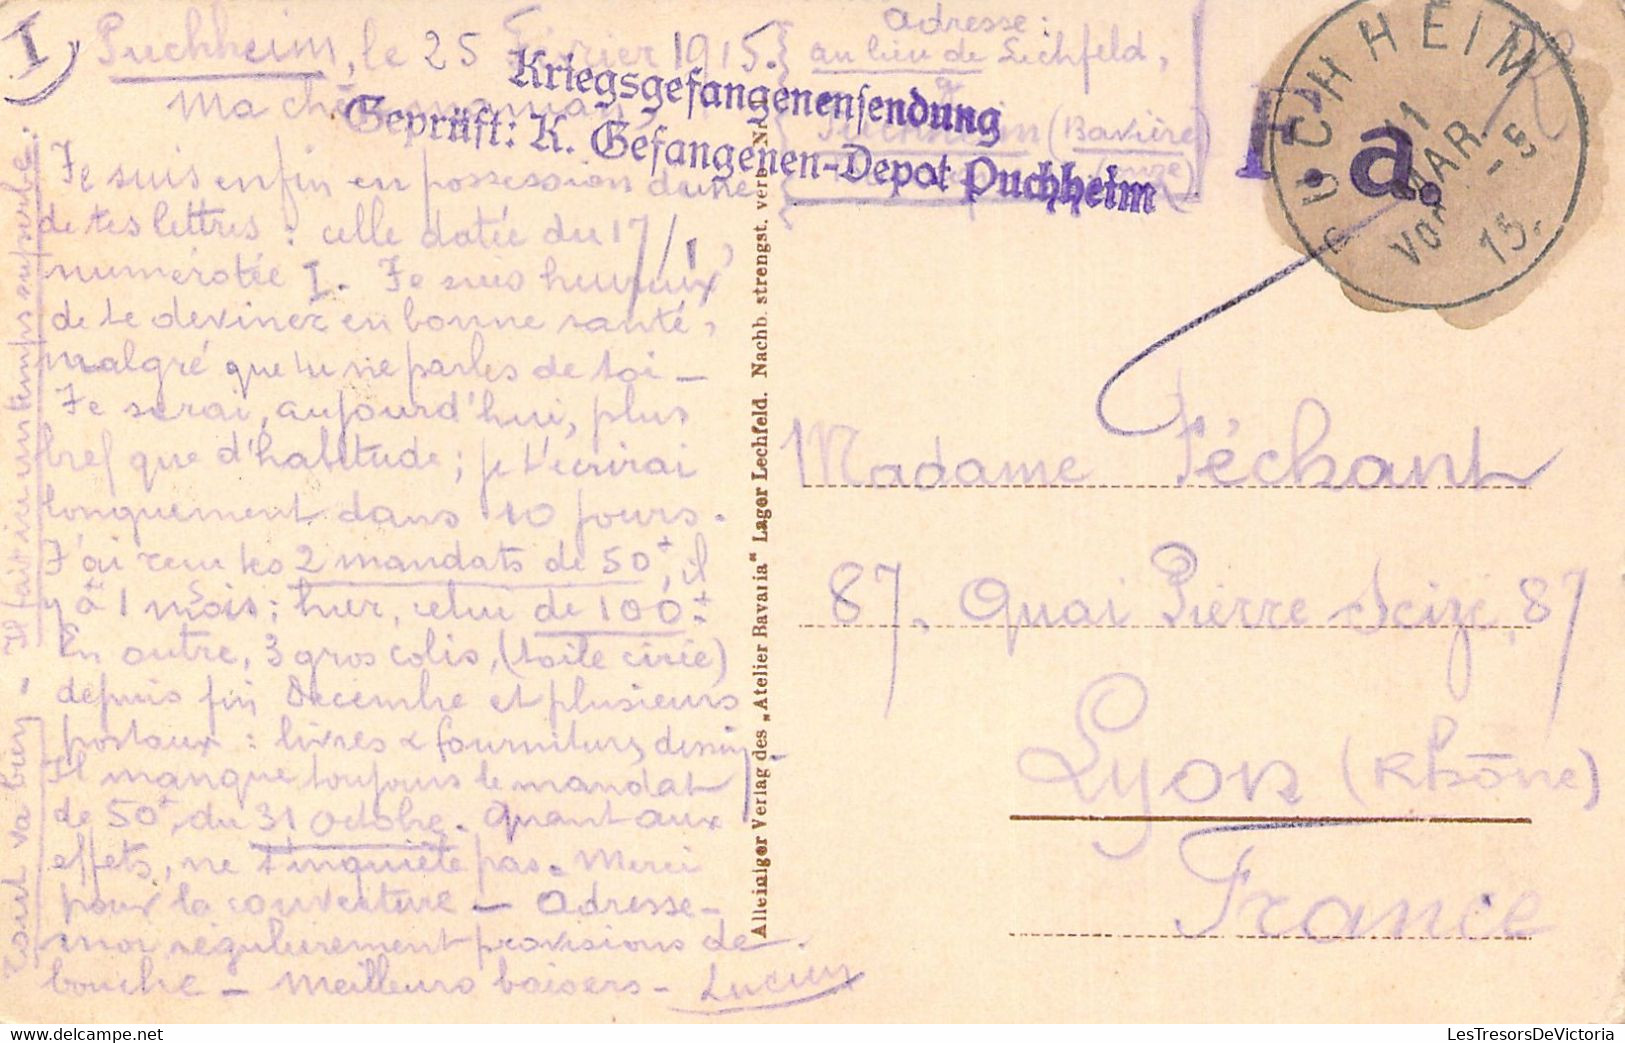 I
Puchheim, le 25 Février 1915.
Ma chère maman,
Je suis enfin en possession d'une
de tes lettres : celle datée du 17/1,
numérotée I. Je suis heureux
de te deviner en bonne santé,
malgré que tu ne parles de toi —
Je serai, aujourd'hui, plus
bref que d'habitude ; je t'écrirai
longuement dans 10 jours.
J'ai reçu les 2 mandats de 50f, il
y a 1 mois ; hier, celui de 100f.
En outre, 3 gros colis, (toile cirée)
depuis fin Décembre et plusieurs
postaux : livres & fournitures dessin.
Il manque toujours le mandat
de 50f du 31 octobre. Quant aux
effets, ne t'inquiète pas. Merci
pour la couverture — Adresse-
moi régulièrement provisions de
bouche — Meilleurs baisers — Lucien
Tout va bien - Il fait ici un temps superbe.
Adresse :
au lieu de Lechfeld,
Puchheim (Bavière)
Kriegsgefangenensendung
Geprüft: K. Gefangenen-Depot Puchheim
F. a.
PUCHHEIM
11
MAR.
Vor
-5
15.
Alleiniger Verlag des „Atelier Bavaria" Lager Lechfeld. Nachb. strengst. verb. N
Madame Féchant
87, Quai Pierre Scize, 87
Lyon (Rhône)
France
LesTresorsDeVictoria.com